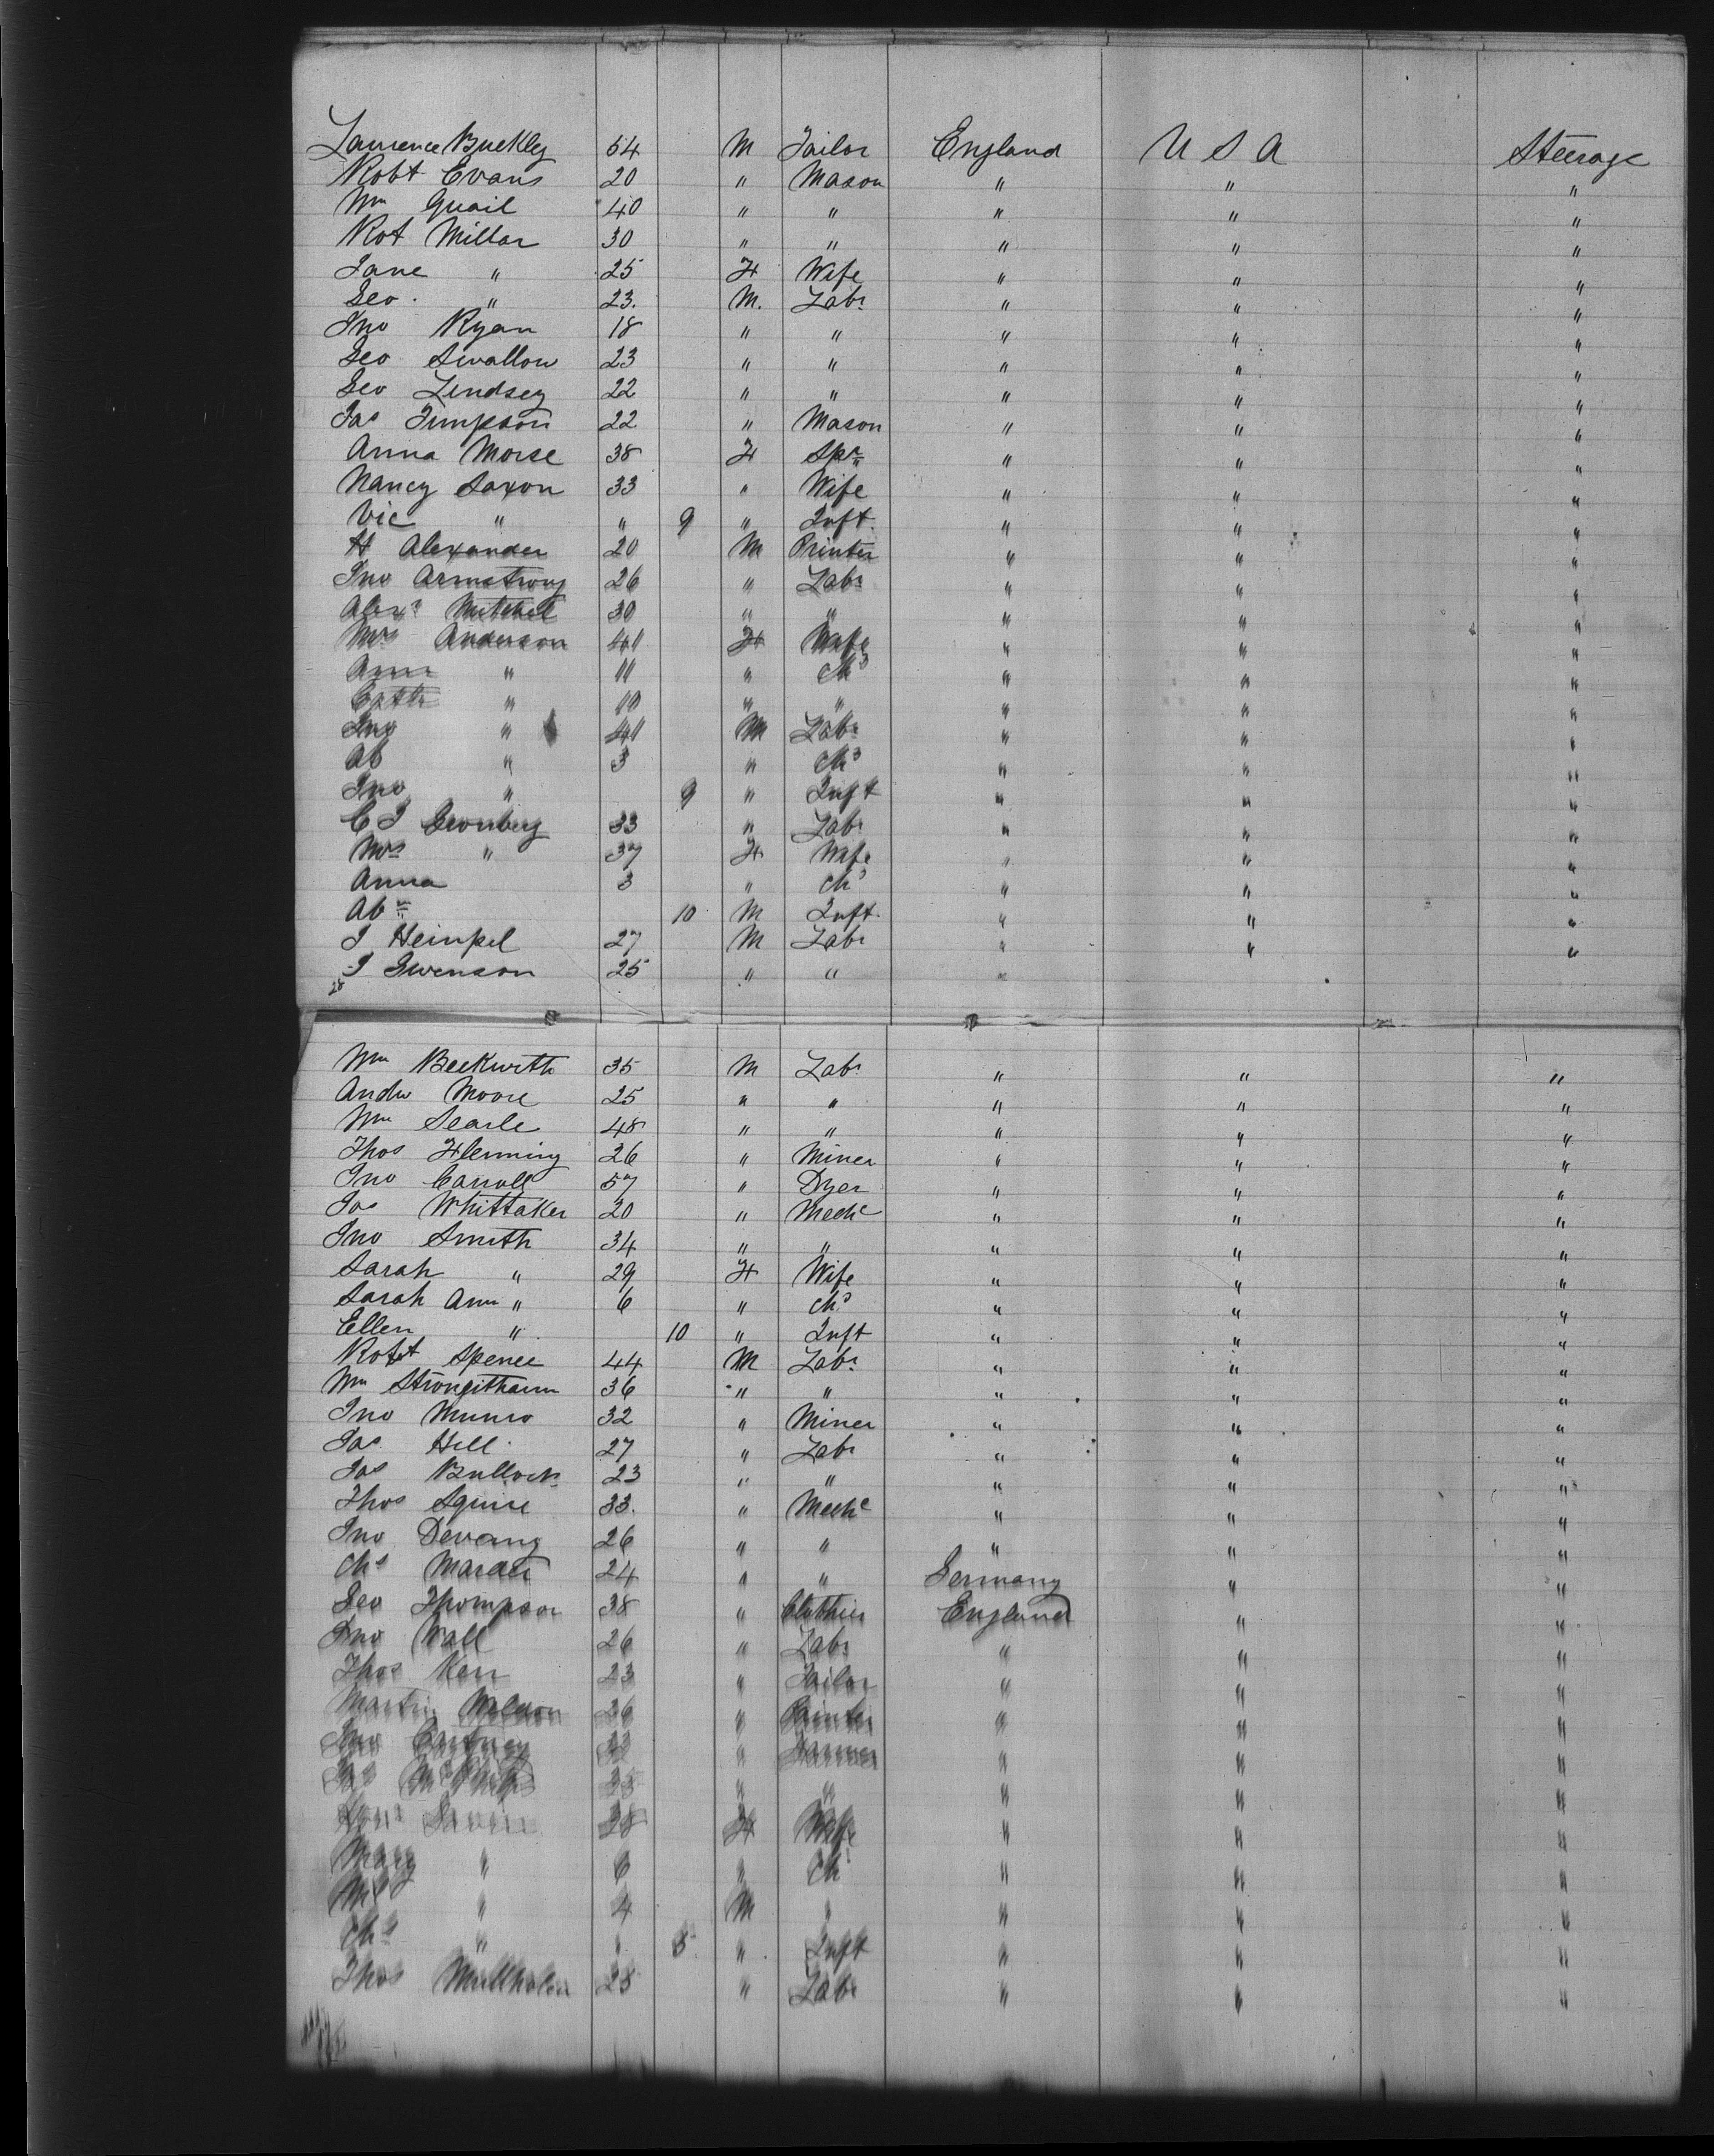 Laurence Buckley 54 M Tailor England U S A Steerage
Robt Evans 20 " Mason " " "
Wm Quail 40 " " " " "
Rot Millar 30 " " " " "
Jane " 25 F Wife " " "
Geo. " 23. M. Labr " " "
Jno Ryan 18 " " " " "
Geo Swallow 23 " " " " "
Geo Lindsey 22 " " " " "
Jas Timpson 22 " Mason " " "
Anna Morse 38 F Spr " " "
Nancy Saxon 33 " Wife " " "
Vic " " 9 " Inft. " " "
H Alexander 20 M Printer " " "
Jno Armstrong 26 " Labr " " "
Alexr Mitchell 30 " " " " "
Mrs Anderson 41 F Wife " " "
Ann " 11 " Chd " " "
" 10 " " " " "
Jno " 41 M Labr " " "
Ab " 3 " Chd " " "
Jno " 9 " Inft " " "
C J Gronberg 33 " Labr " " "
Mrs " 37 F Wife " " "
Anna 3 " Chd " " "
Abm 10 M Inft. " " "
J Heinpel 27 M Labr " " "
J Swenson 25 " " "
28
Wm Beckwith 35 M Labr " " "
Andw Moore 25 " " " " "
Wm Searle 48 " " " " "
Thos Flemming 26 " Miner " " "
Jno Carroll 57 " Dyer " " "
Jas Whittaker 20 " Mechc " " "
Jno Smith 34 " " " " "
Sarah " 29 F Wife " " "
Sarah Ann " 6 " Chd " " "
Ellen " 10 " Inft " " "
Robt Spence 44 M Labr " " "
Wm Strongitharm 36 " " " " "
Jno Munro 32 " Miner " " "
Jas. Hill 27 " Labr " " "
Jas Bullock 23 " " " " "
Thos Squire 33. " Mechc " " "
Jno Devany 26 " " " " "
Chs 24 " " Germany " "
Geo Thompson 38 " Clothier England " "
Jno Wall 26 " Labr " " "
Thos Kerr 23 " Tailor " " "
Martin 26 " " " "
Jno " Farmer " " "
" " " " "
28 F Wife " " "
Mary " 6 " Ch " " "
" 4 M " " " "
Chs " " " Inft " " "
Thos Mullholen 28 " Labr " " "